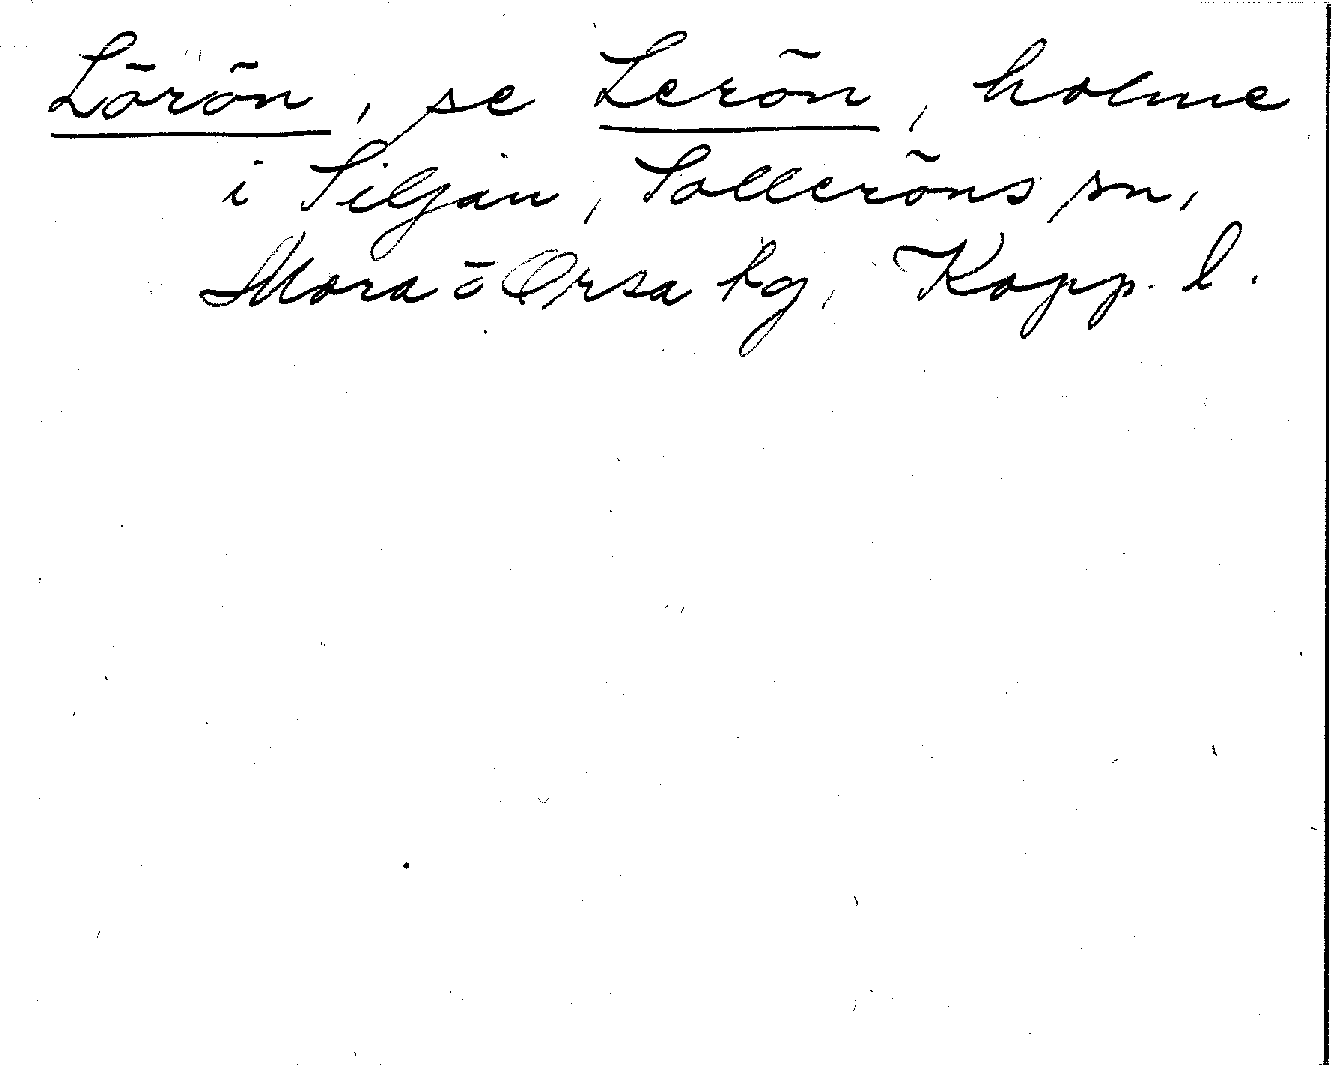 Lörön, se Lerön, holme
i Siljan, Solleröns sn,
Mora o Orsa tg, Kopp. l.